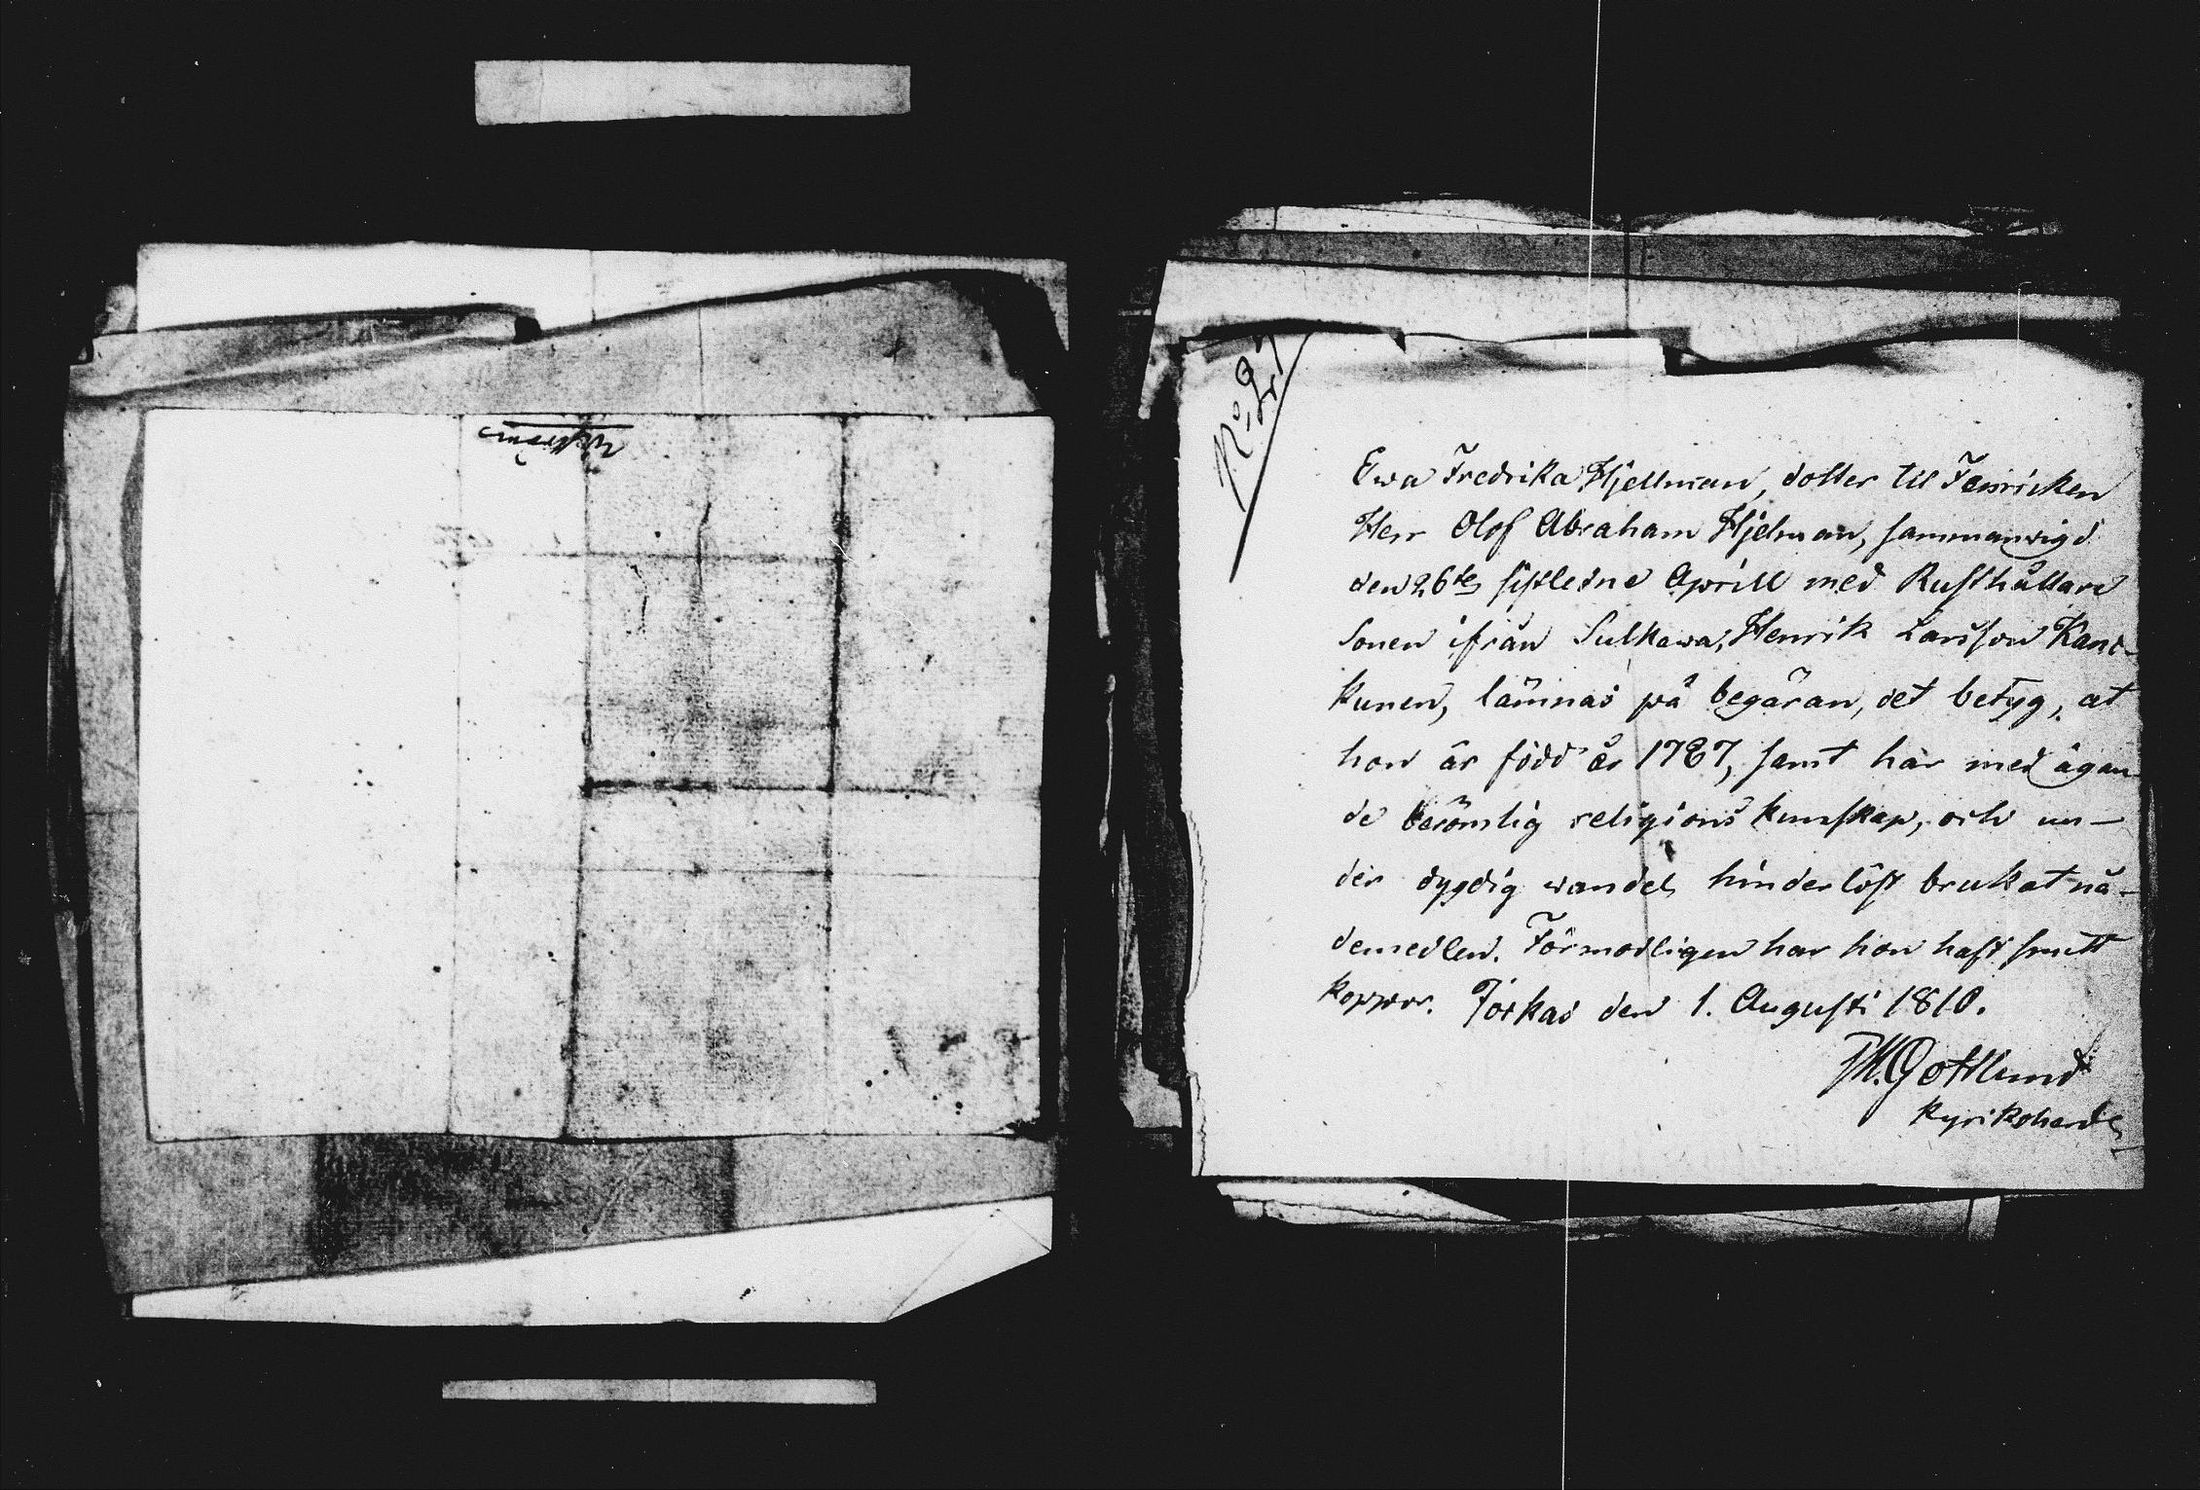 Ewa Fredrika Hjellman, dotter til Fenricken
Herr Olof Abraham Hjelman, sammanwigd
den 26te sistledne Aprill med Rusthållare
Sonen ifrån Sulkawa, Henrik Larsson Kanc-
kunen, lämnas på begäran, det betyg, at
hon är född år 1787, samt här med ägan
de berömlig religions kunskap, och un-
der dygdig wandel, hinderlöst brukat nå-
demedlen. Förmodligen har hon haft smitt
koppor. Jockas den 1. Augusti 1810.
M. Gottlund
Kyrikoherde